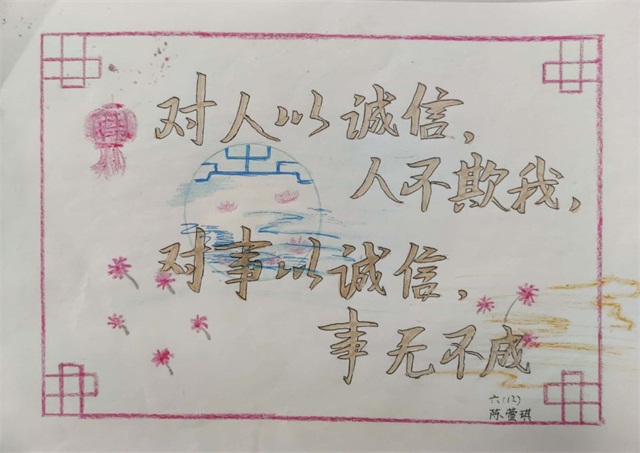 对人以诚信，
人不欺我，
对事以诚信，
事无不成
六(12)
陈萱琪